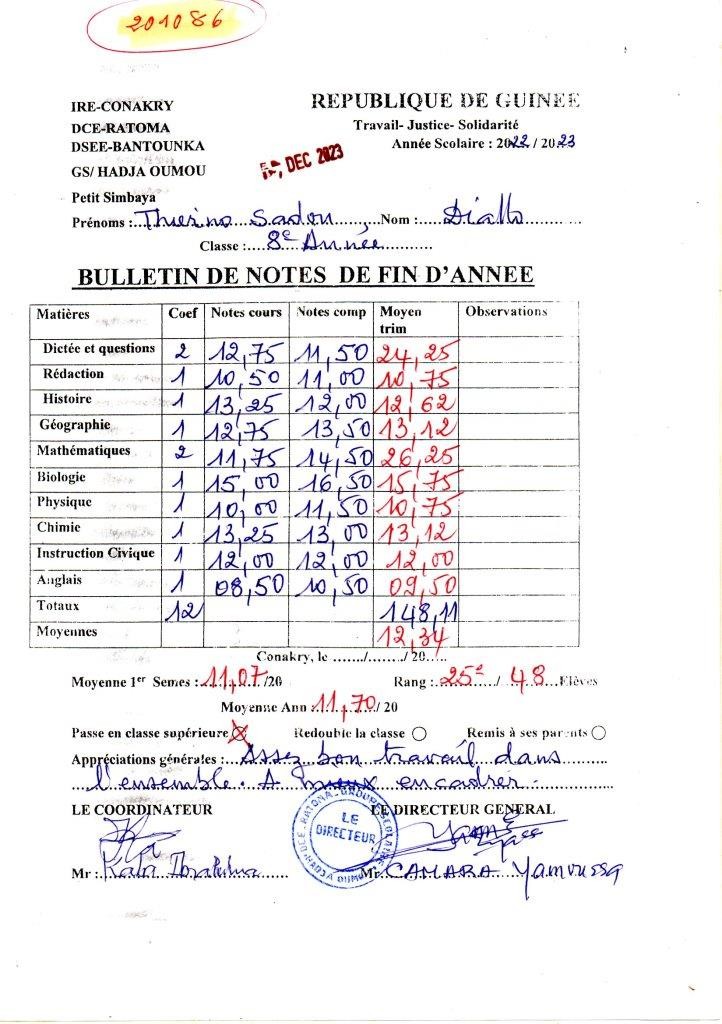 201086
IRE-CONAKRY
REPUBLIQUE DE GUINEE
DCE-RATOMA
Travail- Justice- Solidarité
DSEE-BANTOUNKA
Année Scolaire : 2022 / 2023
DEC 2023
GS/ HADJA OUMOU
Petit Simbaya
Prénoms : Thierno Sadou Nom : Diallo
Classe : 8e Année
BULLETIN DE NOTES DE FIN D'ANNEE
Matières Coef Notes cours Notes comp Moyen trim Observations
Dictée et questions 2 12,75 11,50 24,25
Rédaction 1 10,50 11,00 10,75
Histoire 1 13,25 12,00 12,62
Géographie 1 12,75 13,50 13,12
Mathématiques 2 11,75 14,50 26,25
Biologie 1 15,00 16,50 15,75
Physique 1 10,00 11,50 10,75
Chimie 1 13,25 13,00 13,12
Instruction Civique 1 12,00 12,00 12,00
Anglais 1 08,50 10,50 09,50
Totaux 12 148,11
Moyennes 12,34
Conakry, le ......./......../ 20.....
Moyenne 1er Semes : 11,07 /20 Rang : 25e / 48 Elèves
Moyenne Ann : 11,70 / 20
Passe en classe supérieure Redouble la classe Remis à ses parents
Appréciations générales : Assez bon travail dans
l'ensemble. A mieux encadrer.
LE COORDINATEUR LE DIRECTEUR GENERAL
LE DIRECTEUR
Mr : Mr. CAMARA Yamoussa